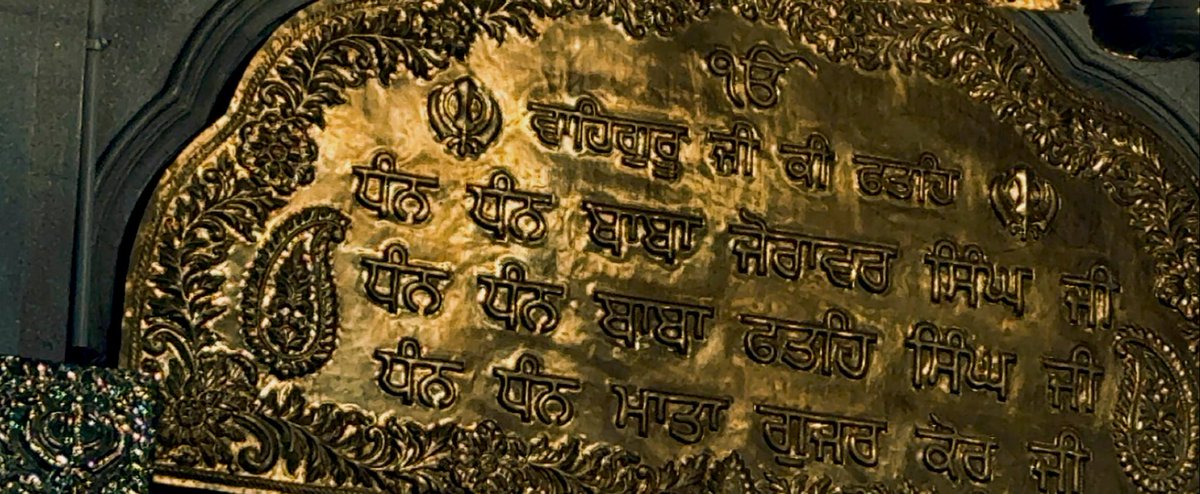 ੴ
ਵਾਹਿਗੁਰੂ ਜੀ ਕੀ ਫਤਹਿ
ਧੰਨ ਧੰਨ ਬਾਬਾ ਜੋਰਾਵਰ ਸਿੰਘ ਜੀ
ਧੰਨ ਧੰਨ ਬਾਬਾ ਫਤਹਿ ਸਿੰਘ ਜੀ
ਧੰਨ ਧੰਨ ਮਾਤਾ ਗੁਜਰ ਕੌਰ ਜੀ